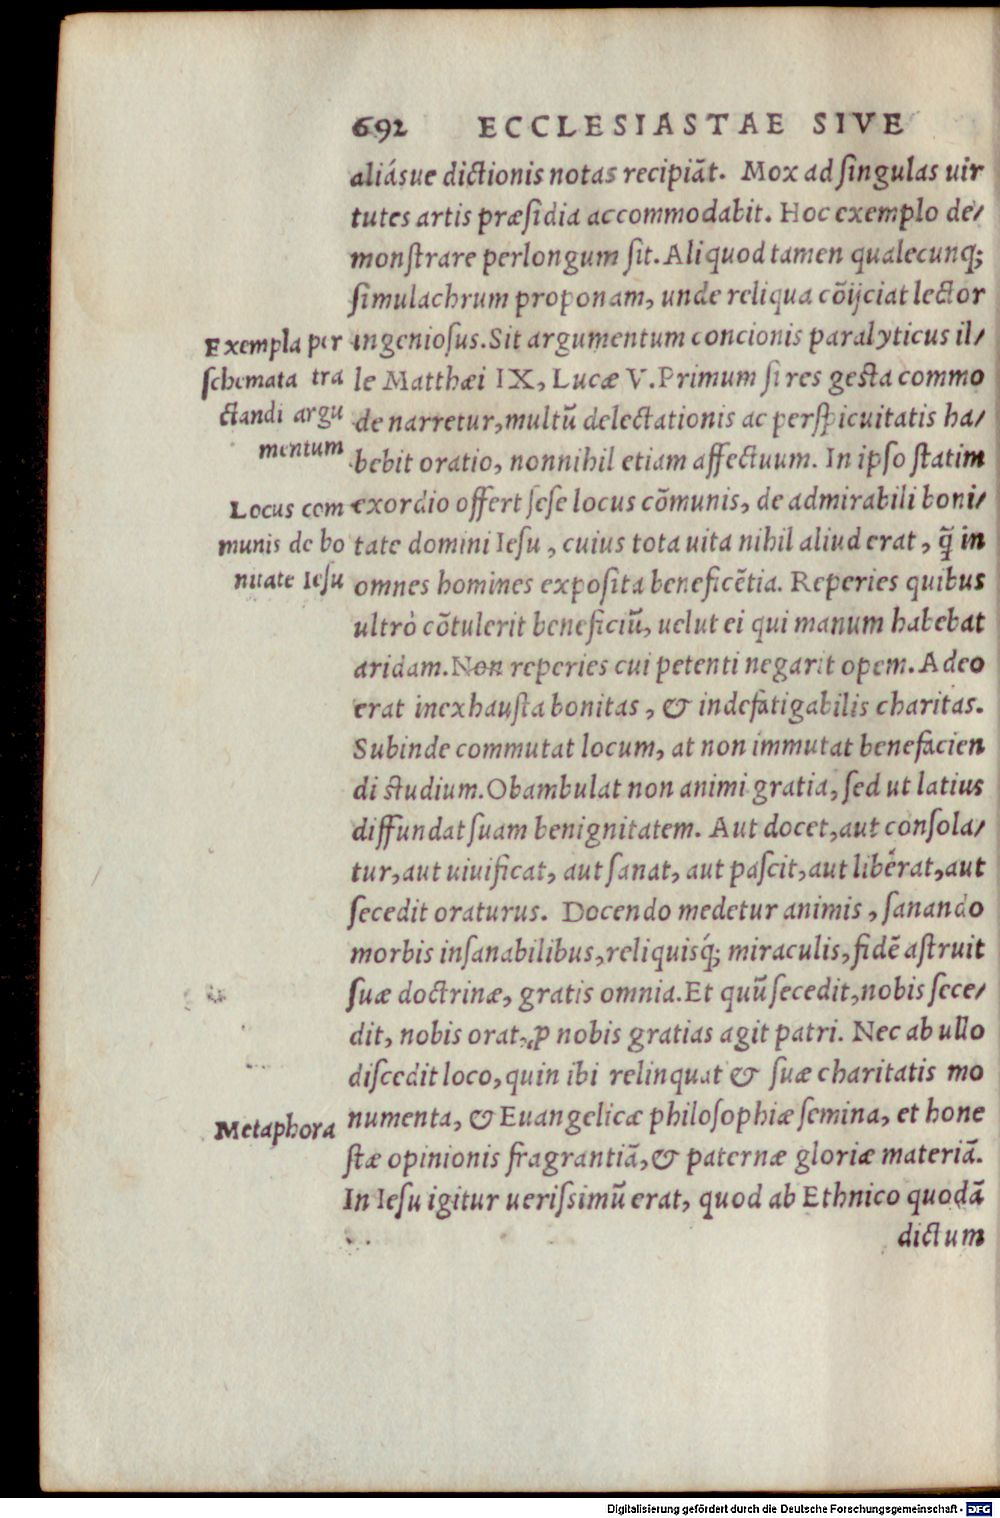 692 ECCLESIASTAE SIVE
aliásue dictionis notas recipiãt. Mox ad ſingulas uir
tutes artis præſidia accommodabit. Hoc exemplo de/
monſtrare perlongum ſit. Aliquod tamen qualecunq;
ſimulachrum proponam, unde reliqua cõijciat lector
Exempla per
ſchemata tra
ctandi argu
mentum
ingenioſus. Sit argumentum concionis paralyticus il/
le Matthæi IX, Lucæ V. Primum ſi res geſta commo
de narretur, multũ delectationis ac perſpicuitatis ha/
bebit oratio, nonnihil etiam affectuum. In ipſo ſtatim
Locus com
munis de bo
nitate Ieſu
exordio offert ſeſe locus cõmunis, de admirabili boni/
tate domini Ieſu, cuius tota uita nihil aliud erat, q̃ in
omnes homines expoſita beneficẽtia. Reperies quibus
ultrò cõtulerit beneficiũ, uelut ei qui manum habebat
aridam. Non reperies cui petenti negarit opem. Adeo
erat inexhauſta bonitas, & indefatigabilis charitas.
Subinde commutat locum, at non immutat benefacien
di ſtudium. Obambulat non animi gratia, ſed ut latius
diffundat ſuam benignitatem. Aut docet, aut conſola/
tur, aut uiuificat, aut ſanat, aut paſcit, aut liberat, aut
ſecedit oraturus. Docendo medetur animis, ſanando
morbis inſanabilibus, reliquisq́; miraculis, fidẽ aſtruit
ſuæ doctrinæ, gratis omnia. Et quũ ſecedit, nobis ſece/
dit, nobis orat, ꝓ nobis gratias agit patri. Nec ab ullo
diſcedit loco, quin ibi relinquat & ſuæ charitatis mo
Metaphora
numenta, & Euangelicæ philoſophiæ ſemina, et hone
ſtæ opinionis fragrantiã, & paternæ gloriæ materiã.
In Ieſu igitur ueriſſimũ erat, quod ab Ethnico quodã
dictum
Digitalisierung gefördert durch die Deutsche Forschungsgemeinschaft - DFG